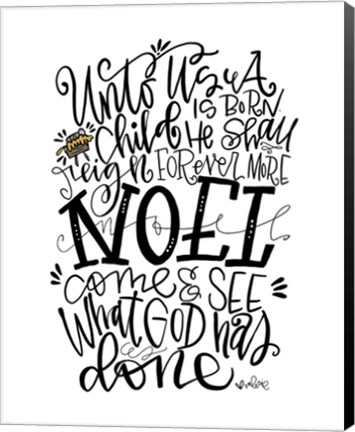 Unto Us A
IS BORN
Child He Shall
reign FOREVER MORE
NOEL
come & SEE
What GOD has
done